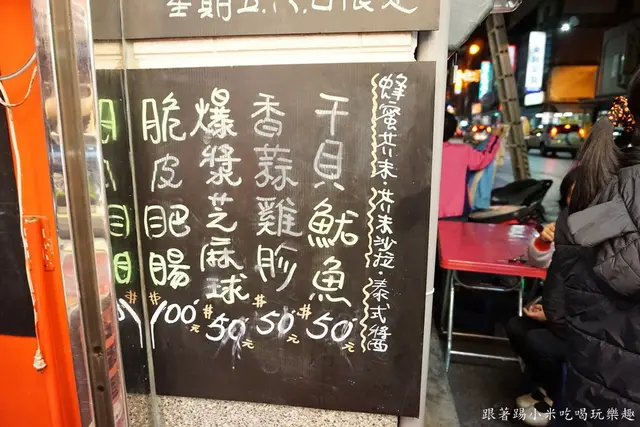 星期五.六.日限定
蜂蜜芥末.芥末沙拉.泰式醬
干貝魷魚
#50元
香蒜雞胗
#50元
爆漿芝麻球
#50元
脆皮肥腸
#100元
跟著踢小米吃喝玩樂趣